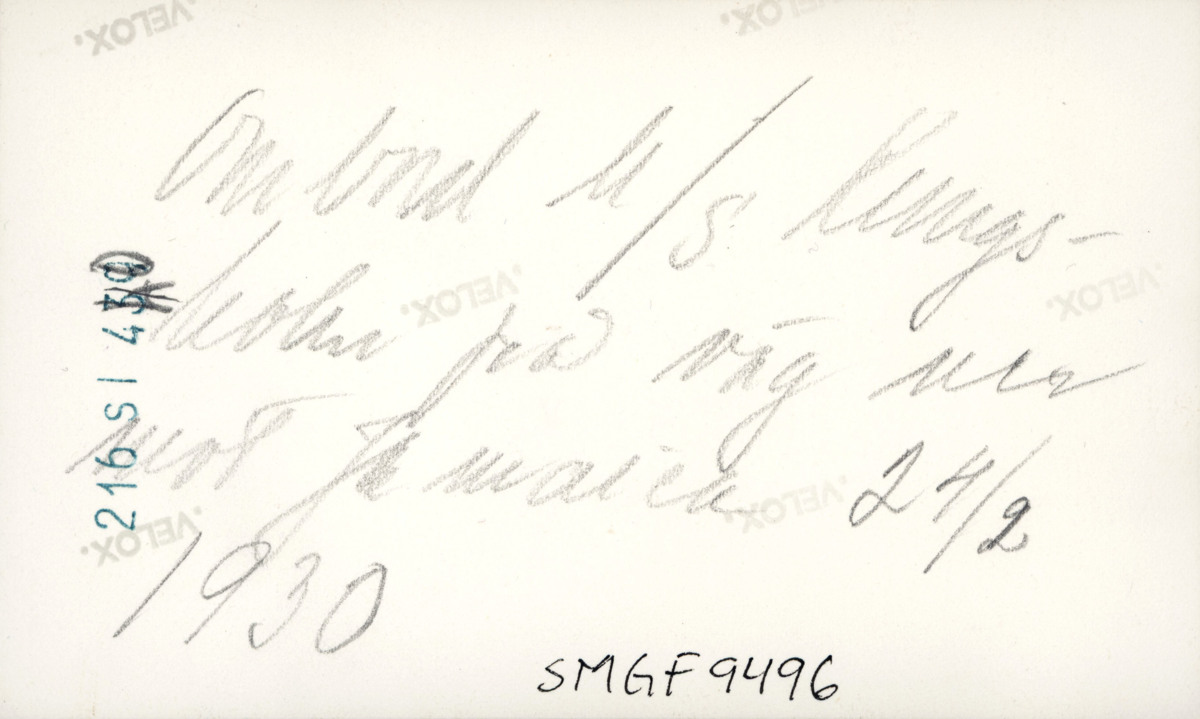 VELOX.
VELOX.
Ombord M/S Kungs-
holm på väg ner
mot Jamaica 24/2
1930
216 SI 4
VELOX.
VELOX.
VELOX.
VELOX.
SMGF9496